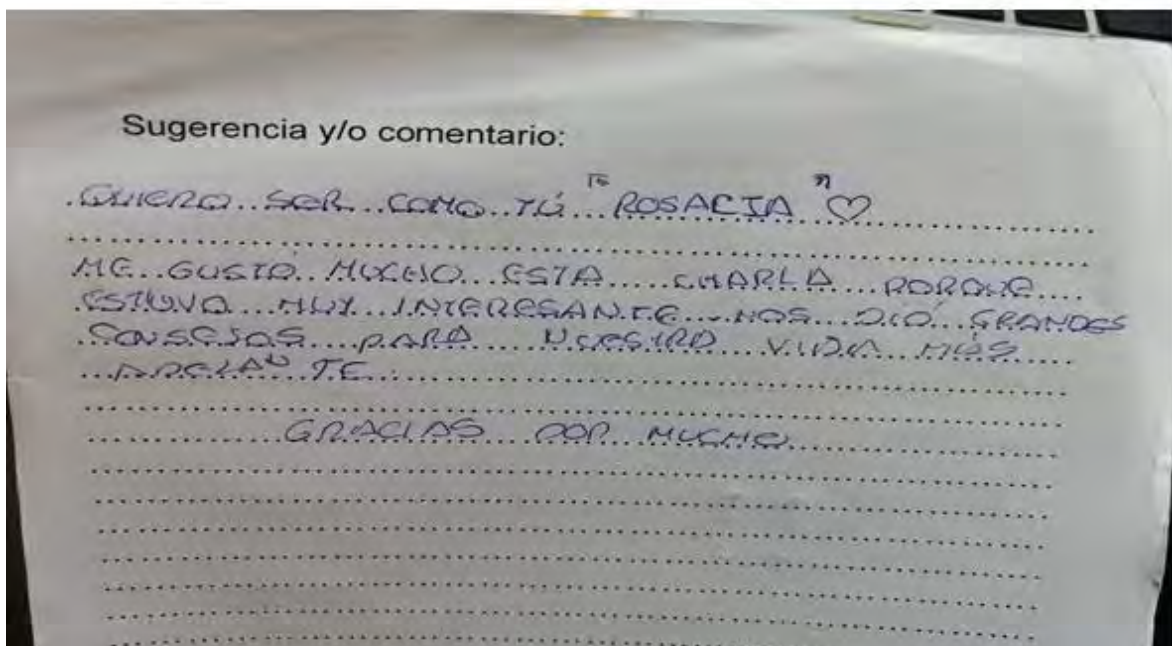 Sugerencia y/o comentario:
QUIERO SER COMO TÚ "ROSACIA" ♡
ME GUSTO MUCHO ESTA CHARLA PORQUE
ESTUVO MUY INTERESANTE NOS DIÓ GRANDES
CONSEJOS PARA NUESTRA VIDA MÁS
ADELANTE
GRACIAS POR MUCHO